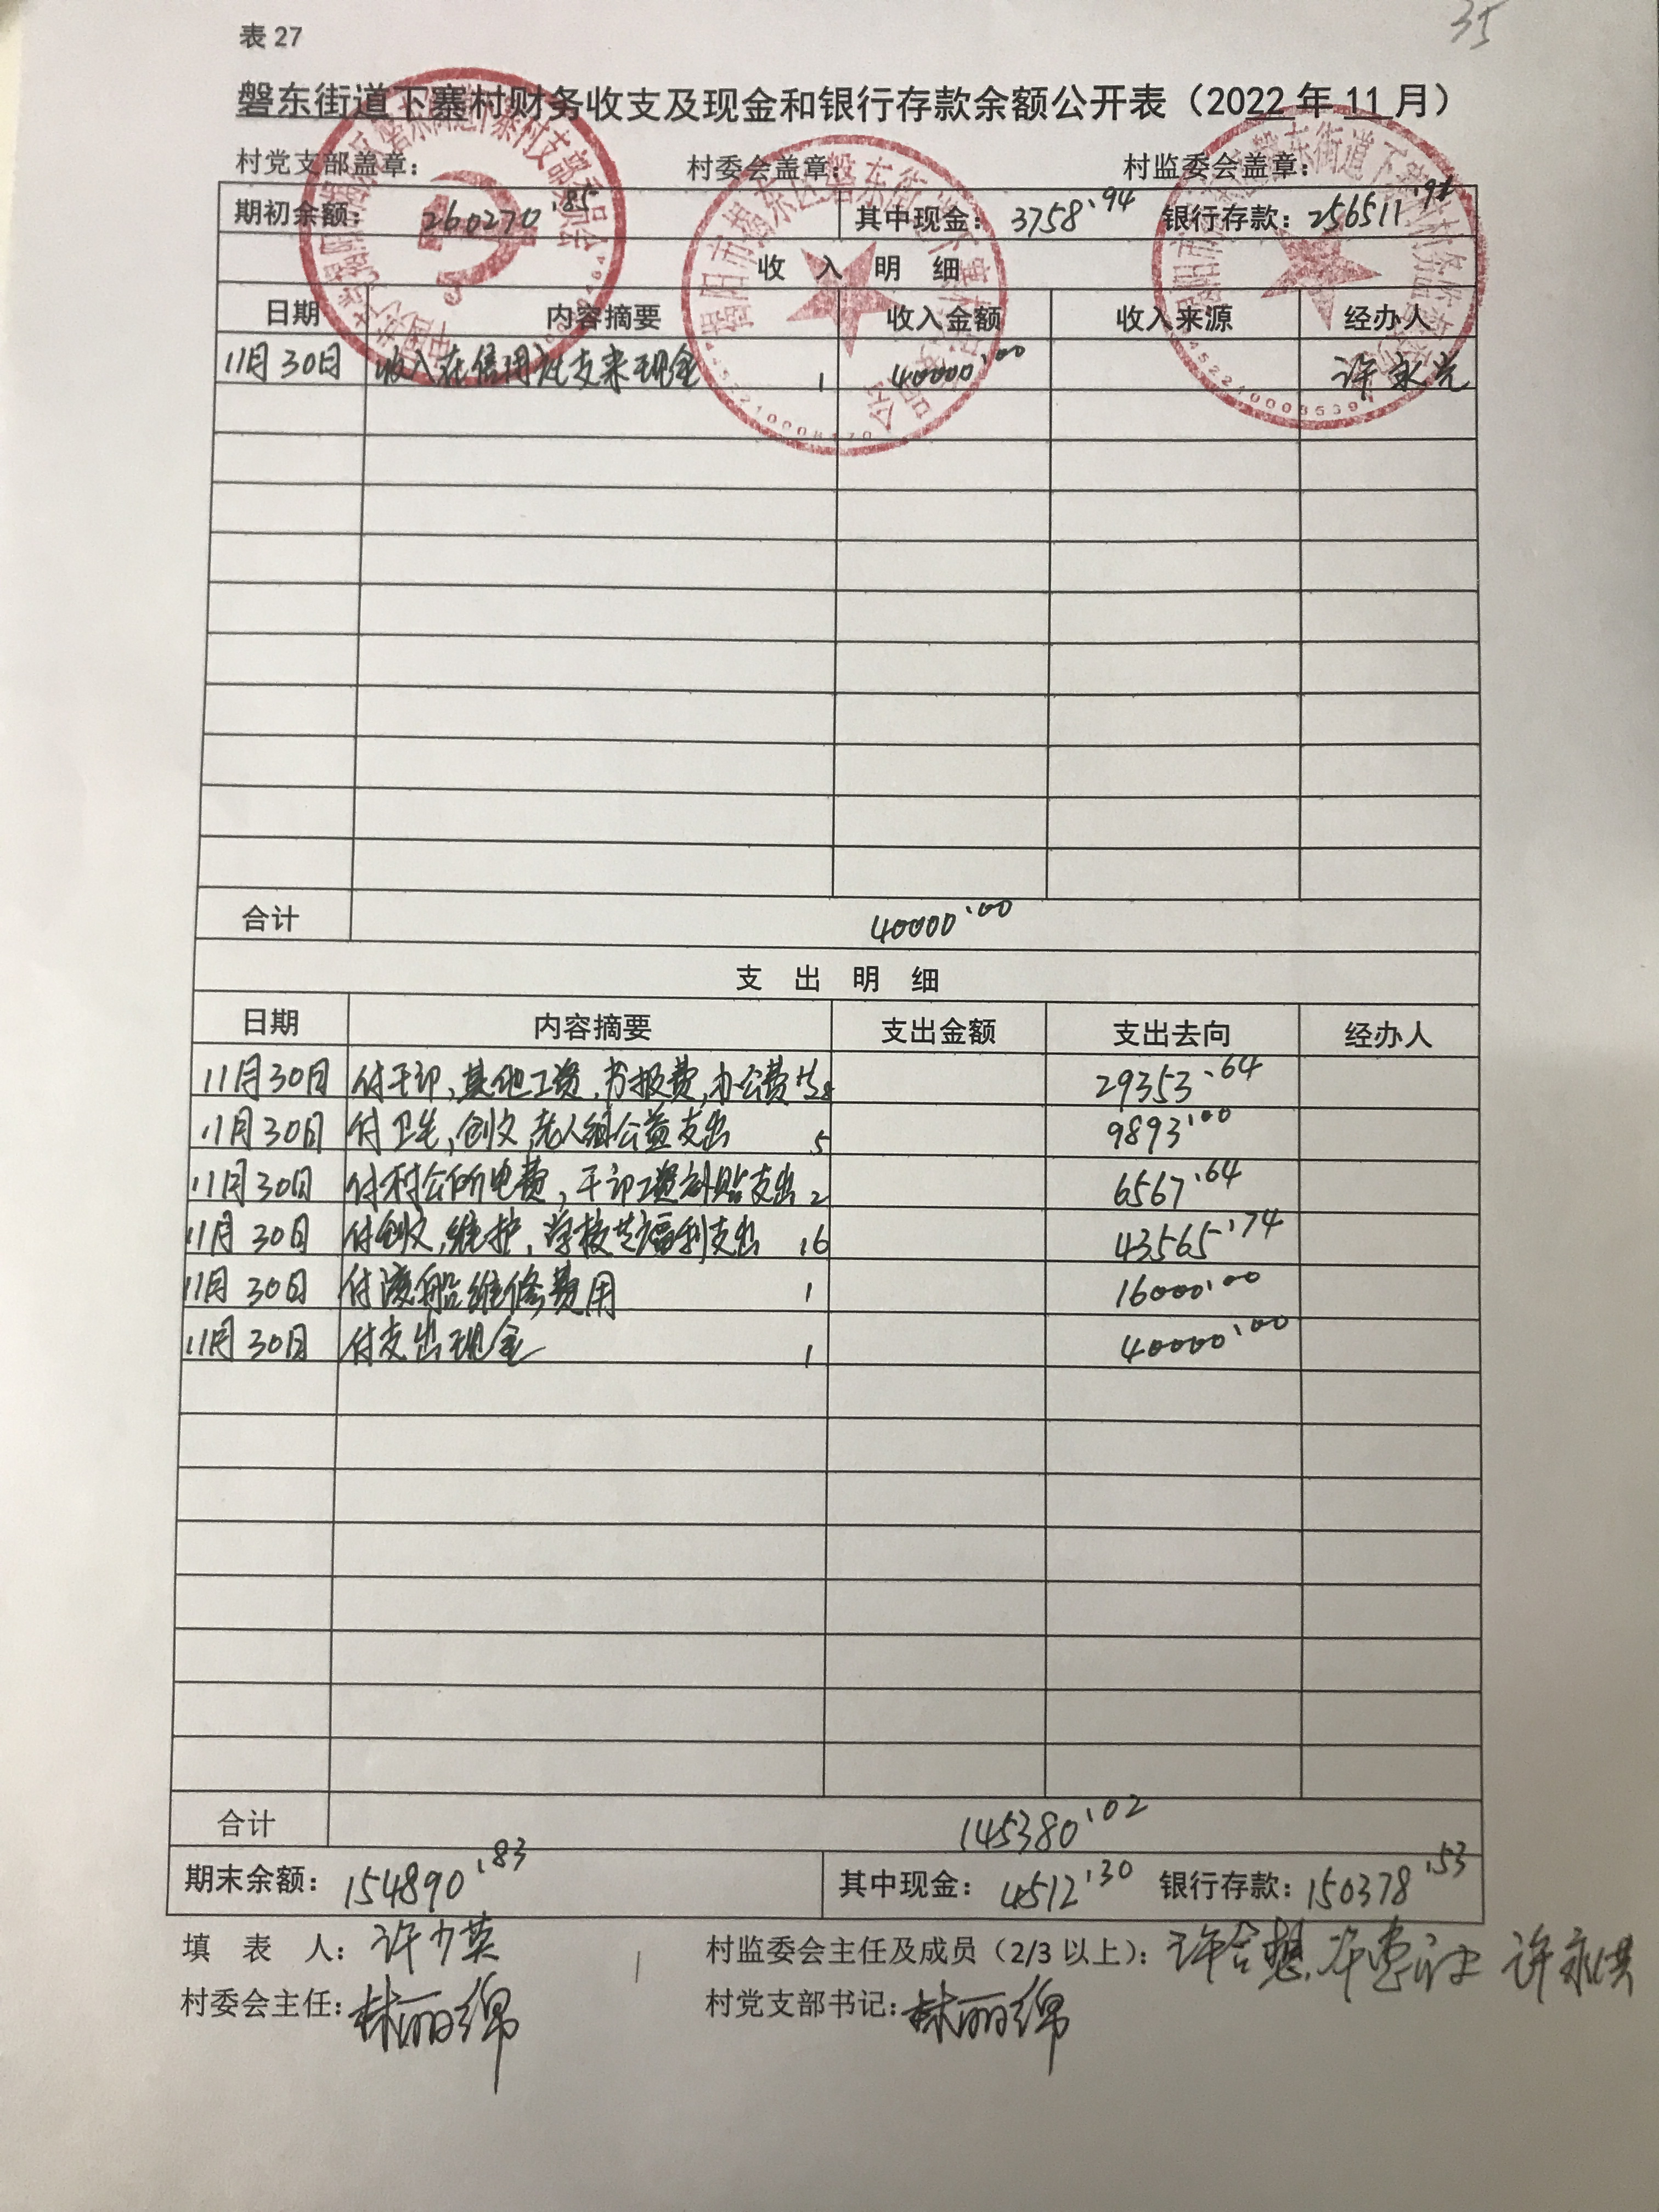 35
表 27
磐东街道下寨村财务收支及现金和银行存款余额公开表（2022 年 11 月）
村党支部盖章： 村委会盖章： 村监委会盖章：
期初余额： 260270.85 其中现金： 3758.94 银行存款： 256511.91
收 入 明 细
日期 内容摘要 收入金额 收入来源 经办人
11月30日 收入在信用社支来现金 1 40000.00 许永光
合计 40000.00
支 出 明 细
日期 内容摘要 支出金额 支出去向 经办人
11月30日 付干部,其他工资,书报费,办公费共28 29353.64
11月30日 付卫生,创文,老人组公益支出 5 9893.00
11月30日 付村公所电费,干部工资补贴支出 2 6567.64
11月30日 付创文,维护,学校共福利支出 16 43565.74
11月30日 付渡船维修费用 1 16000.00
11月30日 付支出现金 1 40000.00
合计 145380.02
期末余额： 154890.83 其中现金： 4512.30 银行存款： 150378.53
填 表 人： 许少英 村监委会主任及成员（2/3 以上）： 许合想 许永洪
村委会主任： 林丽绵 村党支部书记： 林丽绵